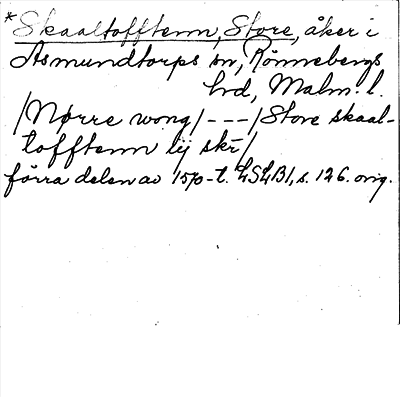 *Skaaltofftenn, Store, åker i
Asmundtorps sn, Rönnebergs
hd, Malm. l.
/Nørre wong/ - - - /Store skaal-
tofftenn iij skr/
förra delen av 1570-t. LSLB1, s. 126. orig.